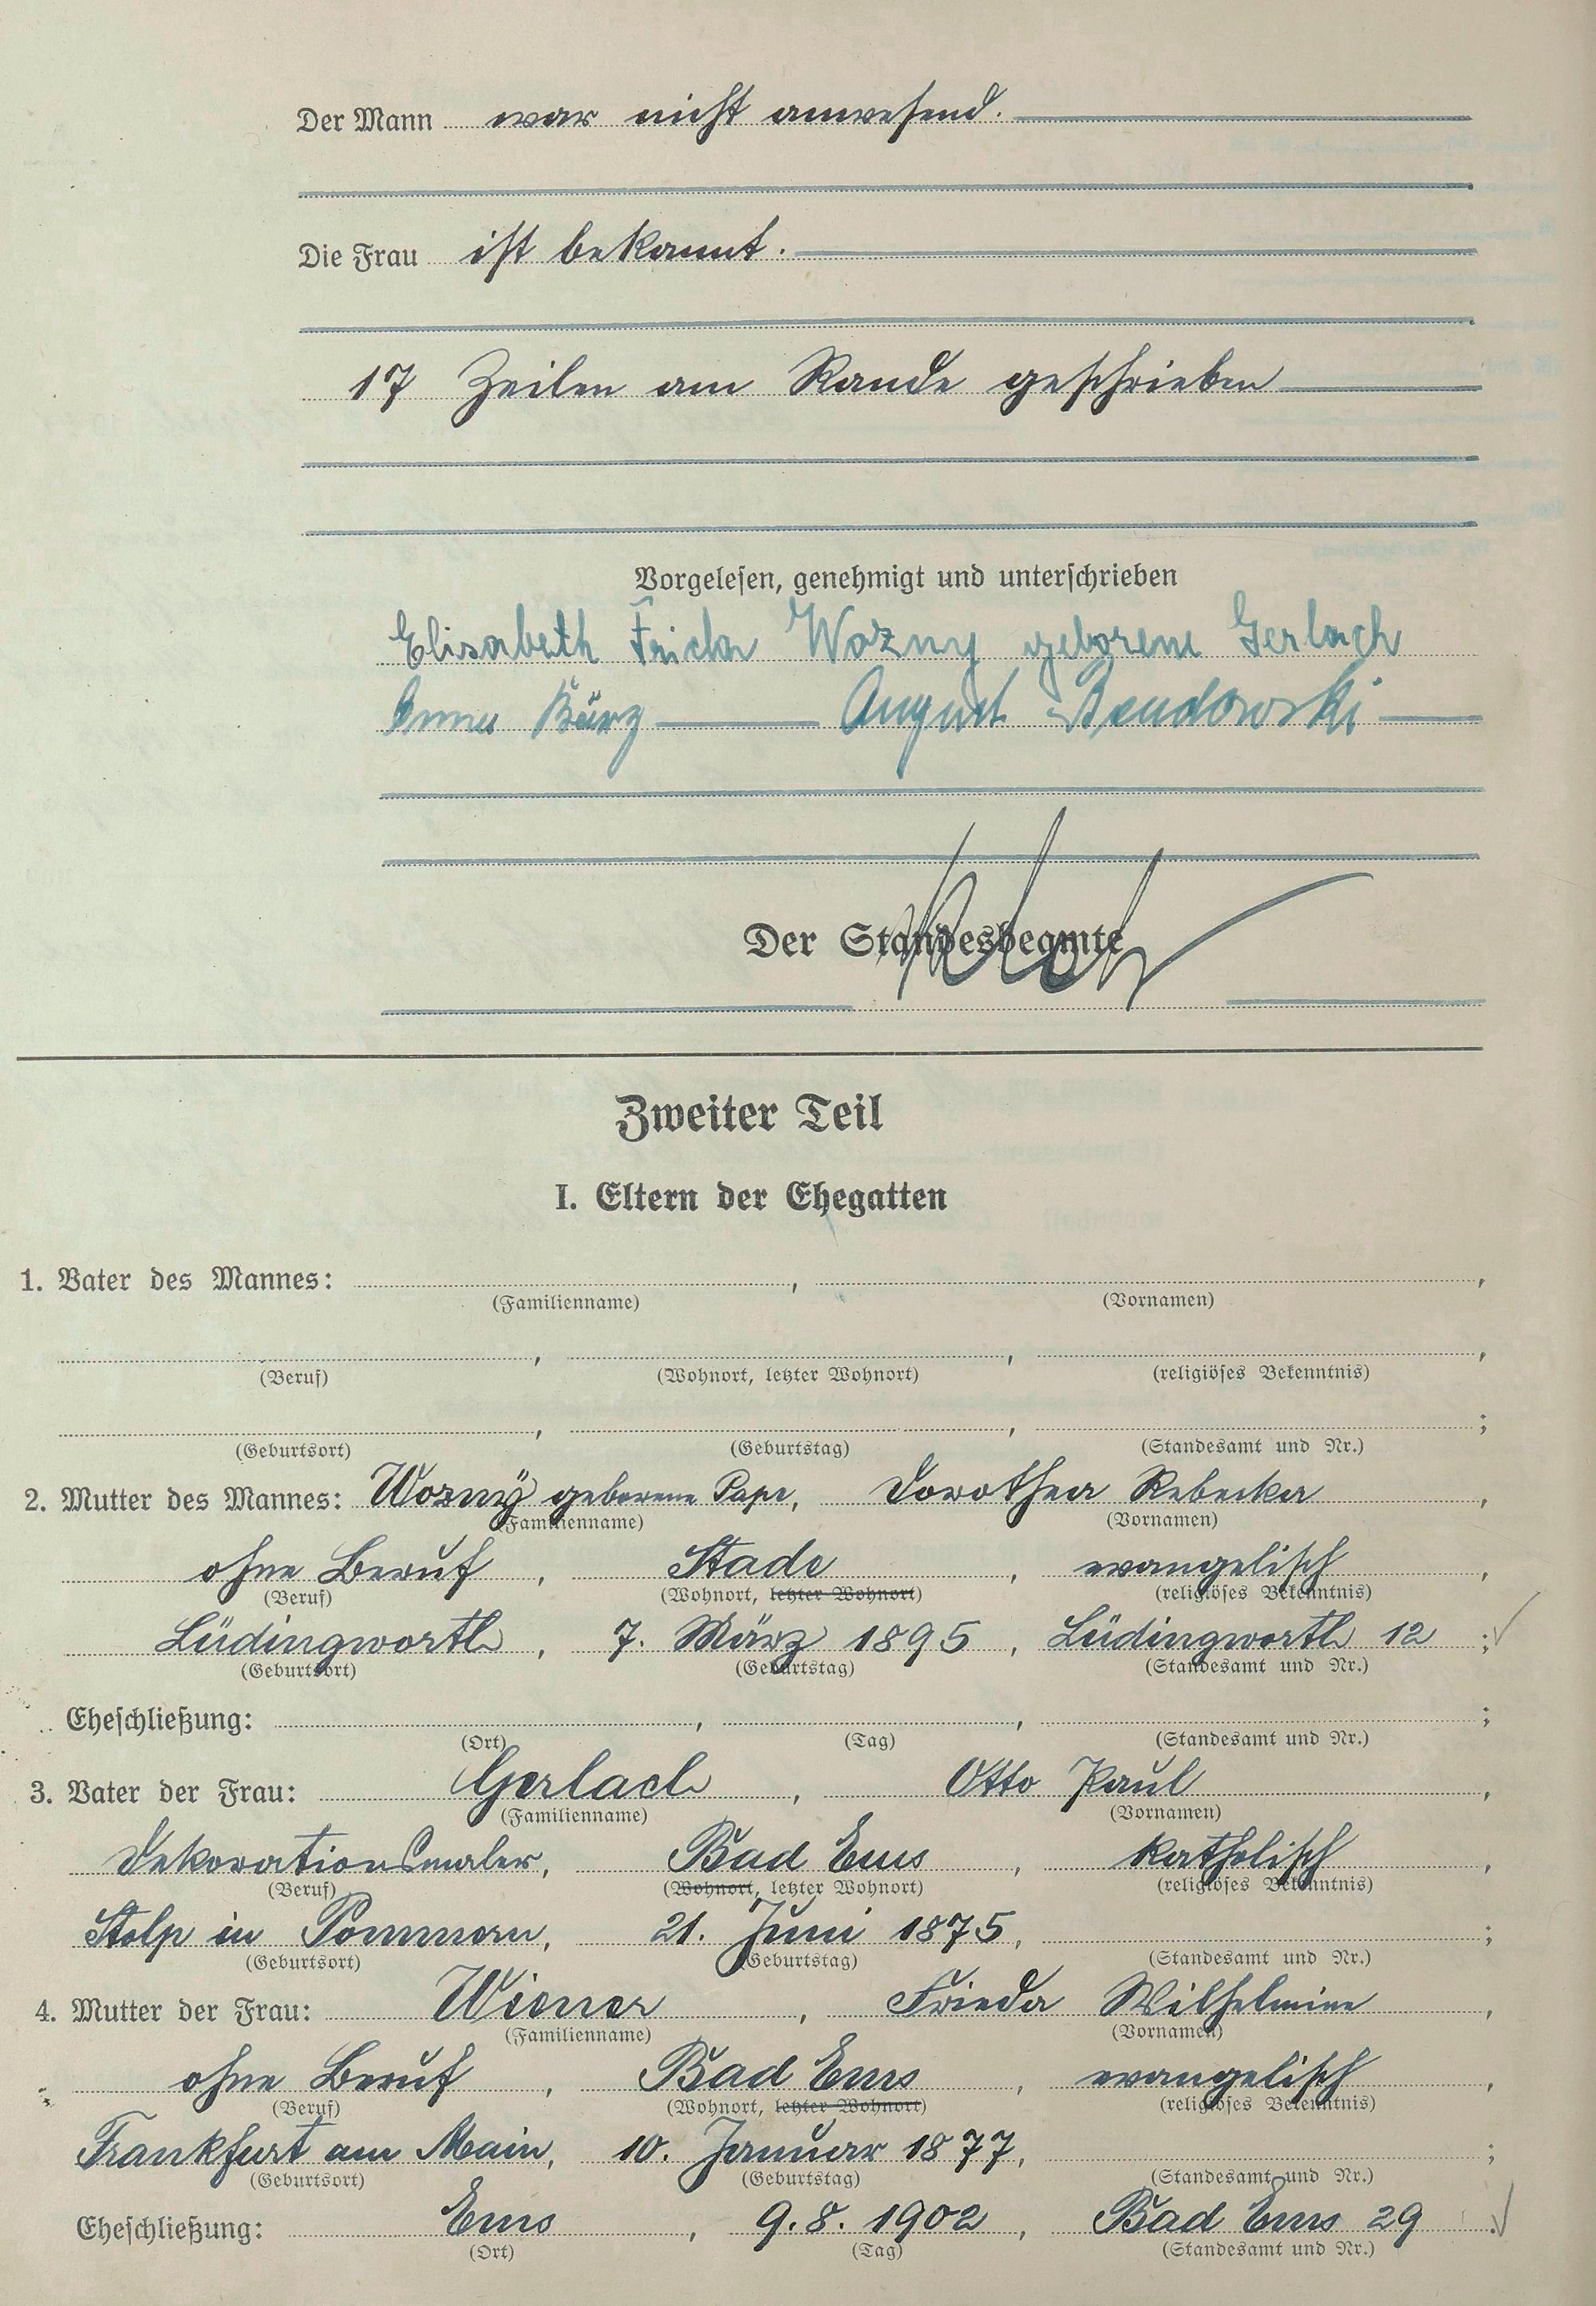 Der Mann war nicht anwesend.
Die Frau ist bekannt.
17 Zeilen am Rande geschrieben
Vorgelesen, genehmigt und unterschrieben
Elisabeth Fricka Wozny geborene Gerlach
Anna Bürz August Bendowski
Der Standesbeamte
Zweiter Teil
I. Eltern der Ehegatten
1. Vater des Mannes: , ,
(Familienname) (Vornamen)
, , ,
(Beruf) (Wohnort, letzter Wohnort) (religiöses Bekenntnis)
, , ;
(Geburtsort) (Geburtstag) (Standesamt und Nr.)
2. Mutter des Mannes: Wozny geborene Pape, Dorothea Rebecka ,
(Familienname) (Vornamen)
ohne Beruf , Stade , evangelisch ,
(Beruf) (Wohnort, letzter Wohnort) (religiöses Bekenntnis)
Lüdingworth , 7. März 1895 , Lüdingworth 12 ;
(Geburtsort) (Geburtstag) (Standesamt und Nr.)
Eheschließung: , , ;
(Ort) (Tag) (Standesamt und Nr.)
3. Vater der Frau: Gerlach , Otto Paul ,
(Familienname) (Vornamen)
Dekorationsmaler, Bad Ems , katholisch ,
(Beruf) (Wohnort, letzter Wohnort) (religiöses Bekenntnis)
Stolp in Pommern, 21. Juni 1875, ;
(Geburtsort) (Geburtstag) (Standesamt und Nr.)
4. Mutter der Frau: Wiener , Frieda Wilhelmine ,
(Familienname) (Vornamen)
ohne Beruf , Bad Ems , evangelisch ,
(Beruf) (Wohnort, letzter Wohnort) (religiöses Bekenntnis)
Frankfurt am Main, 10. Januar 1877, ;
(Geburtsort) (Geburtstag) (Standesamt und Nr.)
Eheschließung: Ems , 9.8.1902 , Bad Ems 29 .
(Ort) (Tag) (Standesamt und Nr.)